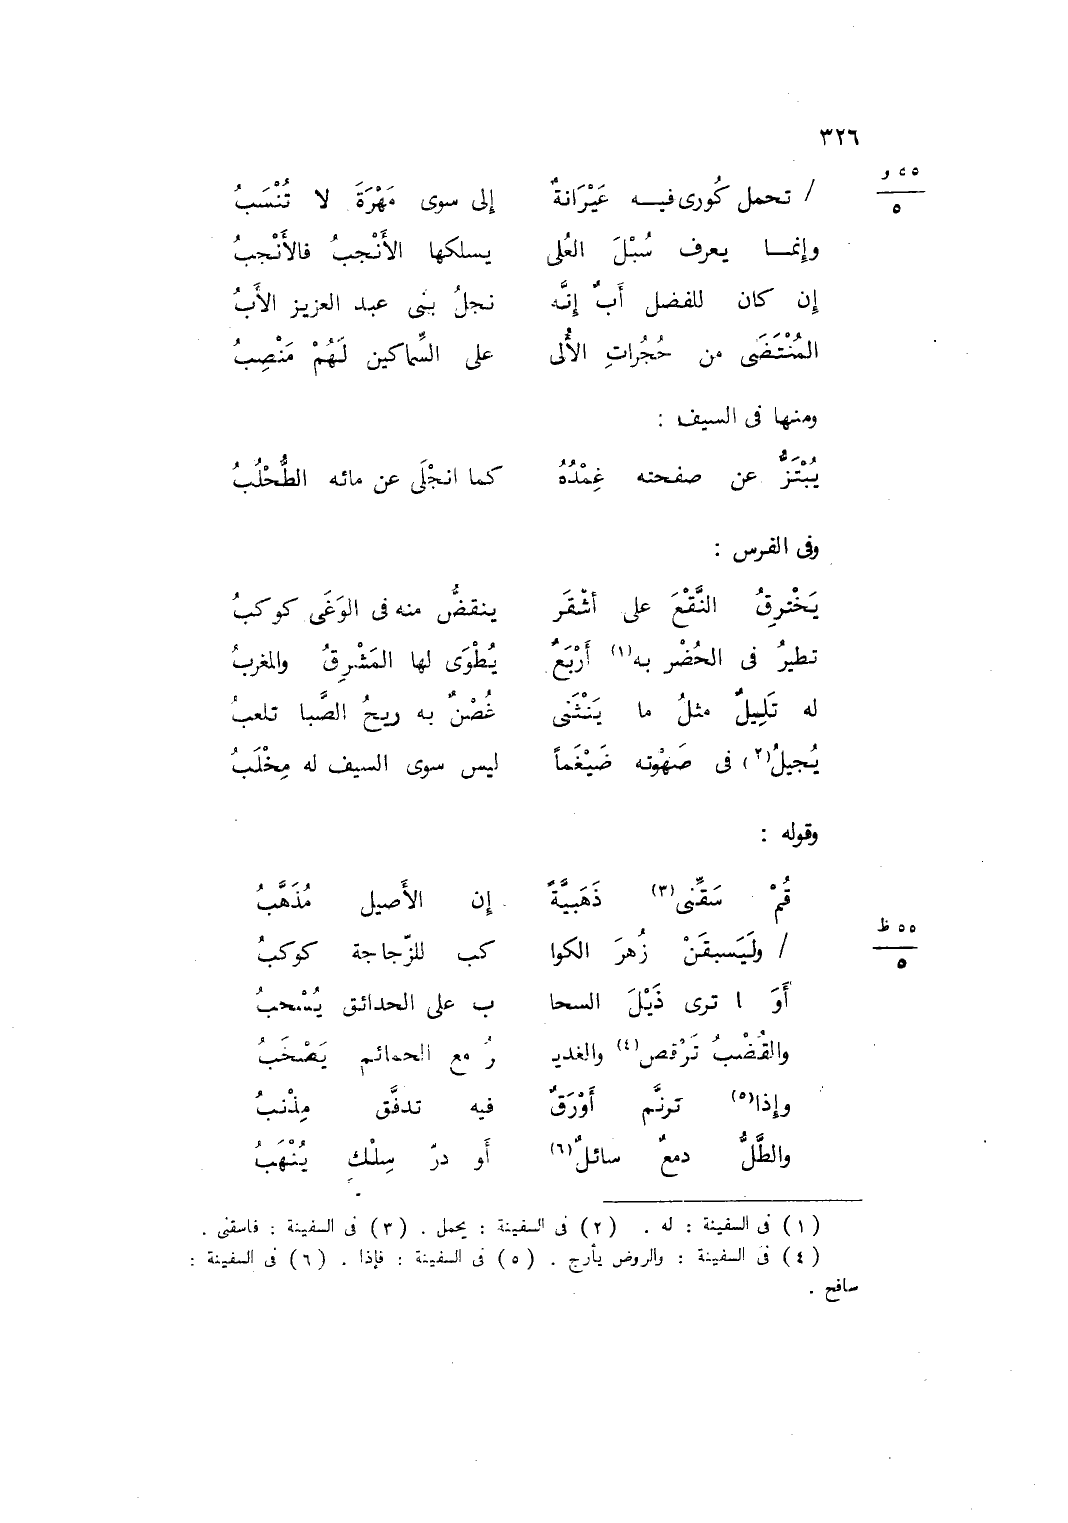 ٣٢٦
/ تحمل كُورى فيـــه عَيْرَانةٌ إلى سوى مَهْرَةَ لا تُنْسَبُ
٥٤ و
٥
وإنمـــا يعرف سُبْلَ العُلى يسلكها الأَنْجبُ فالأَنْجبُ
إن كان للفضل أبٌ إنَّه نجلُ بنى عبد العزيز الأَبُ
المُنْتَضَى من حُجُراتِ الأُلى على السِّماكين لَهُمْ مَنْصِبُ
ومنها فى السيف :
يُبْتَزُّ عن صفحته غِمْدُهُ كما انجْلَى عن مائه الطُّحْلُبُ
وفى الفرس :
يَخْترِقُ النَّقْعَ على أشْقَر ينقضُّ منه فى الوَغَى كوكبُ
تطيرُ فى الحُضْر به(١) أَرْبَعٌ يُطْوَى لها المَشْرِقُ والمغربُ
له تَلِيلٌ مثلُ ما يَنْثَنى غُصْنٌ به ريحُ الصَّبا تلعبُ
يُجيلُ(٢) فى صَهْوته ضَيْغَماً ليس سوى السيف له مِخْلَبُ
وقوله :
قُمْ سَقِّنى(٣) ذَهَبيَّةً إن الأَصيل مُذَهَّبُ
٥٥ ظ
٥
/ ولَيَسبقَنْ زُهرَ الكوا كب للزّجاجة كوكبُ
أَوَ ا ترى ذَيْلَ السحا ب على الحدائق يُسْحبُ
والقُضْبُ تَرْقص(٤) والغديـ رُ مع الحمائم يَصْخَبُ
وإذا(٥) ترنَّم أَوْرَقٌ فيه تدفَّق مِذْنبُ
والطَّلُّ دمعٌ سائلٌ(٦) أو درّ سِلْكٍ يُنْهَبُ
(١) فى السفينة : له . (٢) فى السفينة : يحمل . (٣) فى السفينة : فاسقنى .
(٤) فى السفينة : والروض يأرج . (٥) فى السفينة : فإذا . (٦) فى السفينة :
سافح .